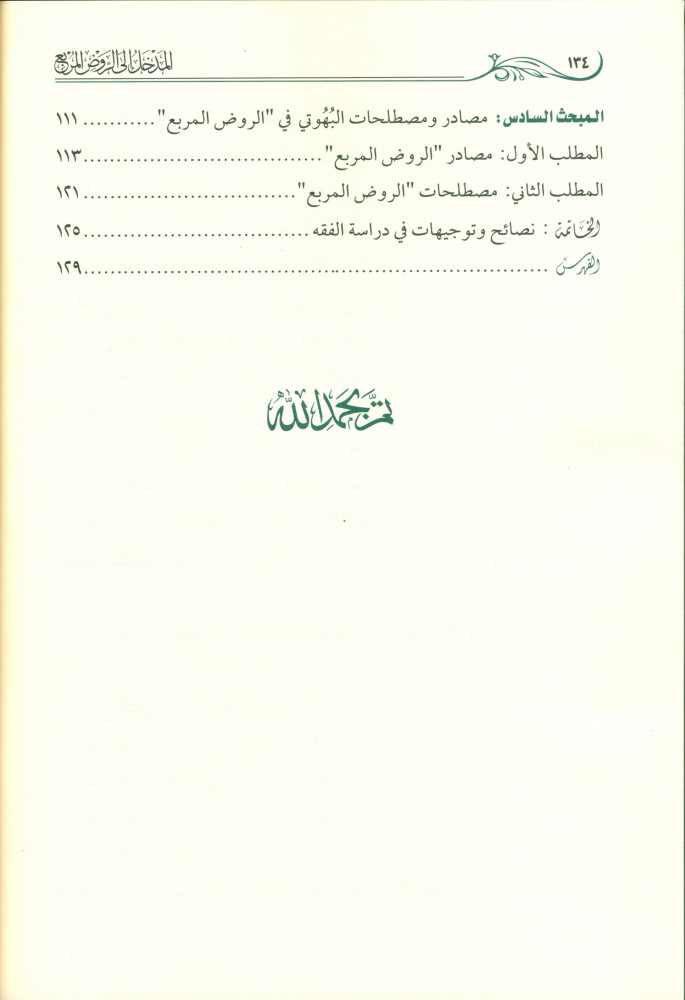 ١٣٤ المدخل إلى الروض المربع
المبحث السادس: مصادر ومصطلحات البُهُوتي في "الروض المربع" ........... ١١١
المطلب الأول: مصادر "الروض المربع" .................................. ١١٣
المطلب الثاني: مصطلحات "الروض المربع" .............................. ١٢١
الخاتمة : نصائح وتوجيهات في دراسة الفقه ................................ ١٢٥
الفهرس .................................................................. ١٢٩
تمَّ بحمد الله